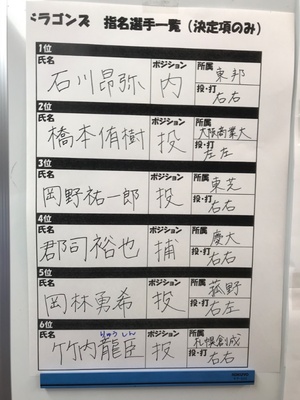 ドラゴンズ 指名選手一覧(決定項のみ)
1位
氏名 ポジション 所属
石川昂弥 内 東邦
投・打
右右
2位
氏名 ポジション 所属
橋本侑樹 投 大阪商業大
投・打
左左
3位
氏名 ポジション 所属
岡野祐一郎 投 東芝
投・打
右右
4位
氏名 ポジション 所属
郡司裕也 捕 慶大
投・打
右右
5位
氏名 ポジション 所属
岡林勇希 投 菰野
投・打
右左
6位
氏名 ポジション 所属
りゅうしん
竹内龍臣 投 札幌創成
投・打
右右